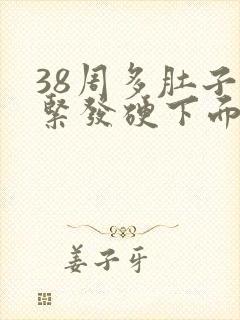 38周多肚子
緊發硬下而
姜子牙